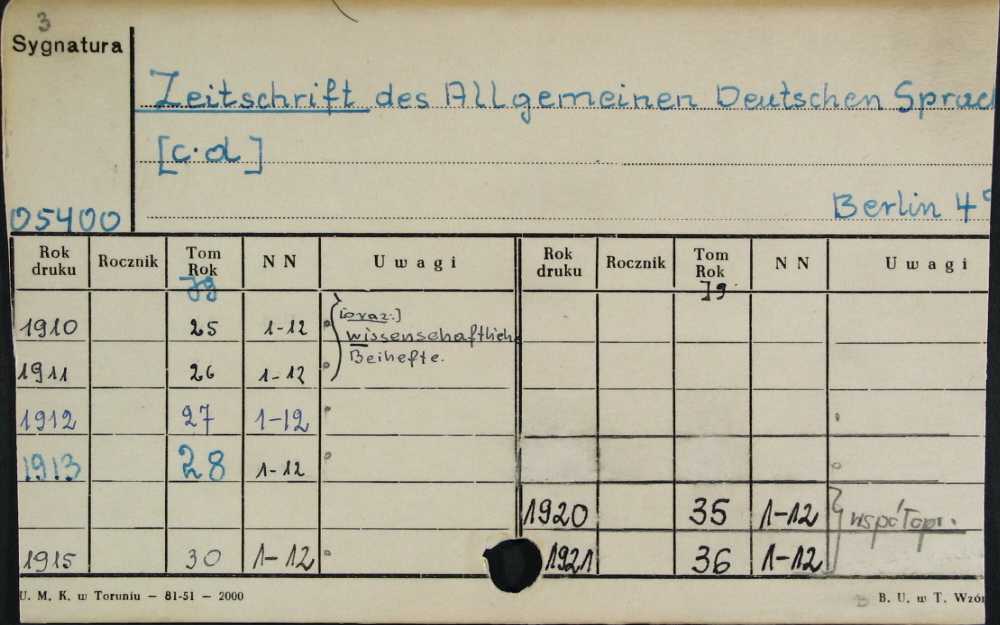 3
Sygnatura
Zeitschrift des Allgemeinen Deutschen Sprac
[c.d]
05400 Berlin 4°
Rok druku Rocznik Tom Rok Jg NN Uwagi Rok druku Rocznik Tom Rok Jg NN Uwagi
1910 25 1-12 [oraz:] wissenschaftliche
1911 26 1-12 Beihefte.
1912 27 1-12
1913 28 1-12
1920 35 1-12 współopr.
1915 30 1-12 1921 36 1-12
U. M. K. w Toruniu — 81-51 — 2000 B. U. w T. Wzór